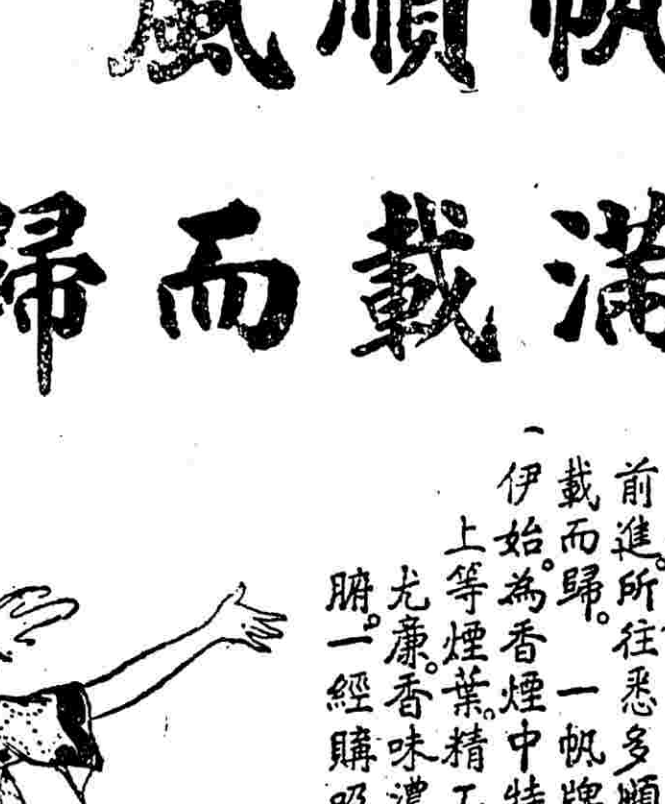 帆順風
滿載而歸
前進。所往悉多順
載而歸。一帆牌
一伊始。為香煙中特
上等煙葉。精工
尤廉。香味濃
腑。一經購吸